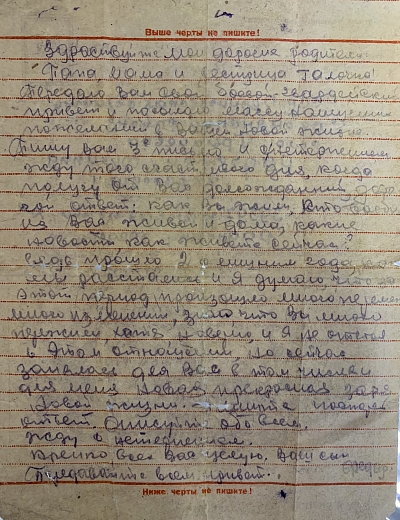 Выше черты не пишите!
Здраствуйте мои дорогие родители
Папа мама и сестрица Галочка!
Передаю Вам свой боевой Гвардейский
привет и посылаю массу наилучших
пожеланий в Вашей новой жизни.
Пишу вам 3 письмо и с нетерпением
жду того счастливого дня, когда
получу от Вас долгожданный
ответ. Как Вы жили, кто
из Вас живет и дома, какие
новости как живете сейчас?
Ведь прошло 2 с лишним года,
мы расстались и я думаю что за
этот период произошло много перемен
много изменений, знаю что Вы много
пережили, хотя наверно, и я не отстал
в этом отношении, но сейчас
занялась для Вас в том числе и
для меня новая прекрасная заря
новой жизни. Пишите
ответ. Опишите обо всем.
Жду с нетерпением.
Крепко всех Вас целую. Ваш сын
Передавайте всем привет.
Ниже черты не пишите!